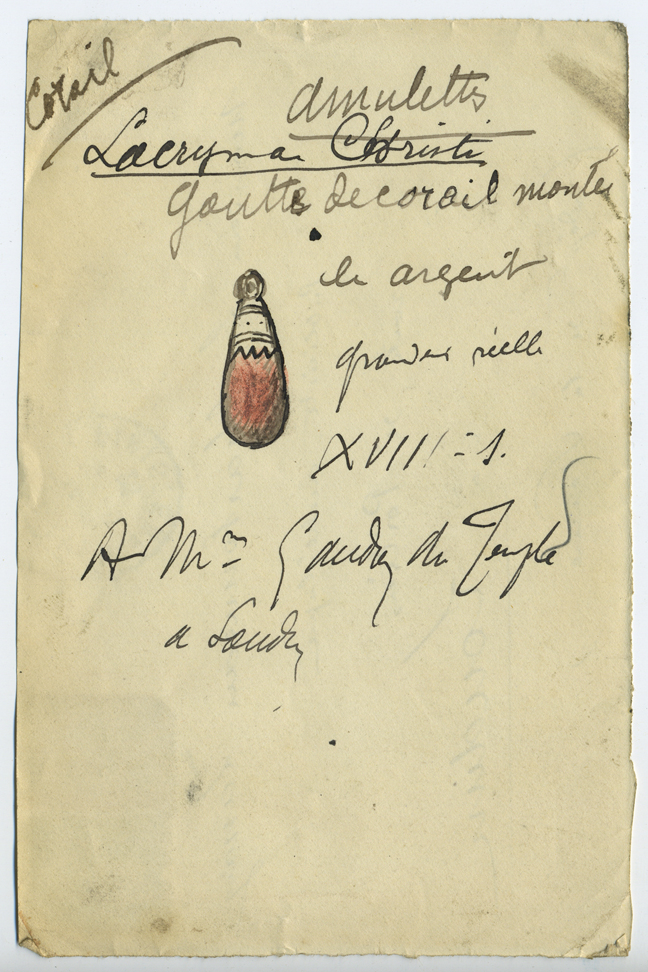 Corail
Amulettes
Lacryma Christi
Goutte de corail montée
en argent
grandeur réelle
XVIII = s.
A Mme Gaudry du Temple
a Gaudry